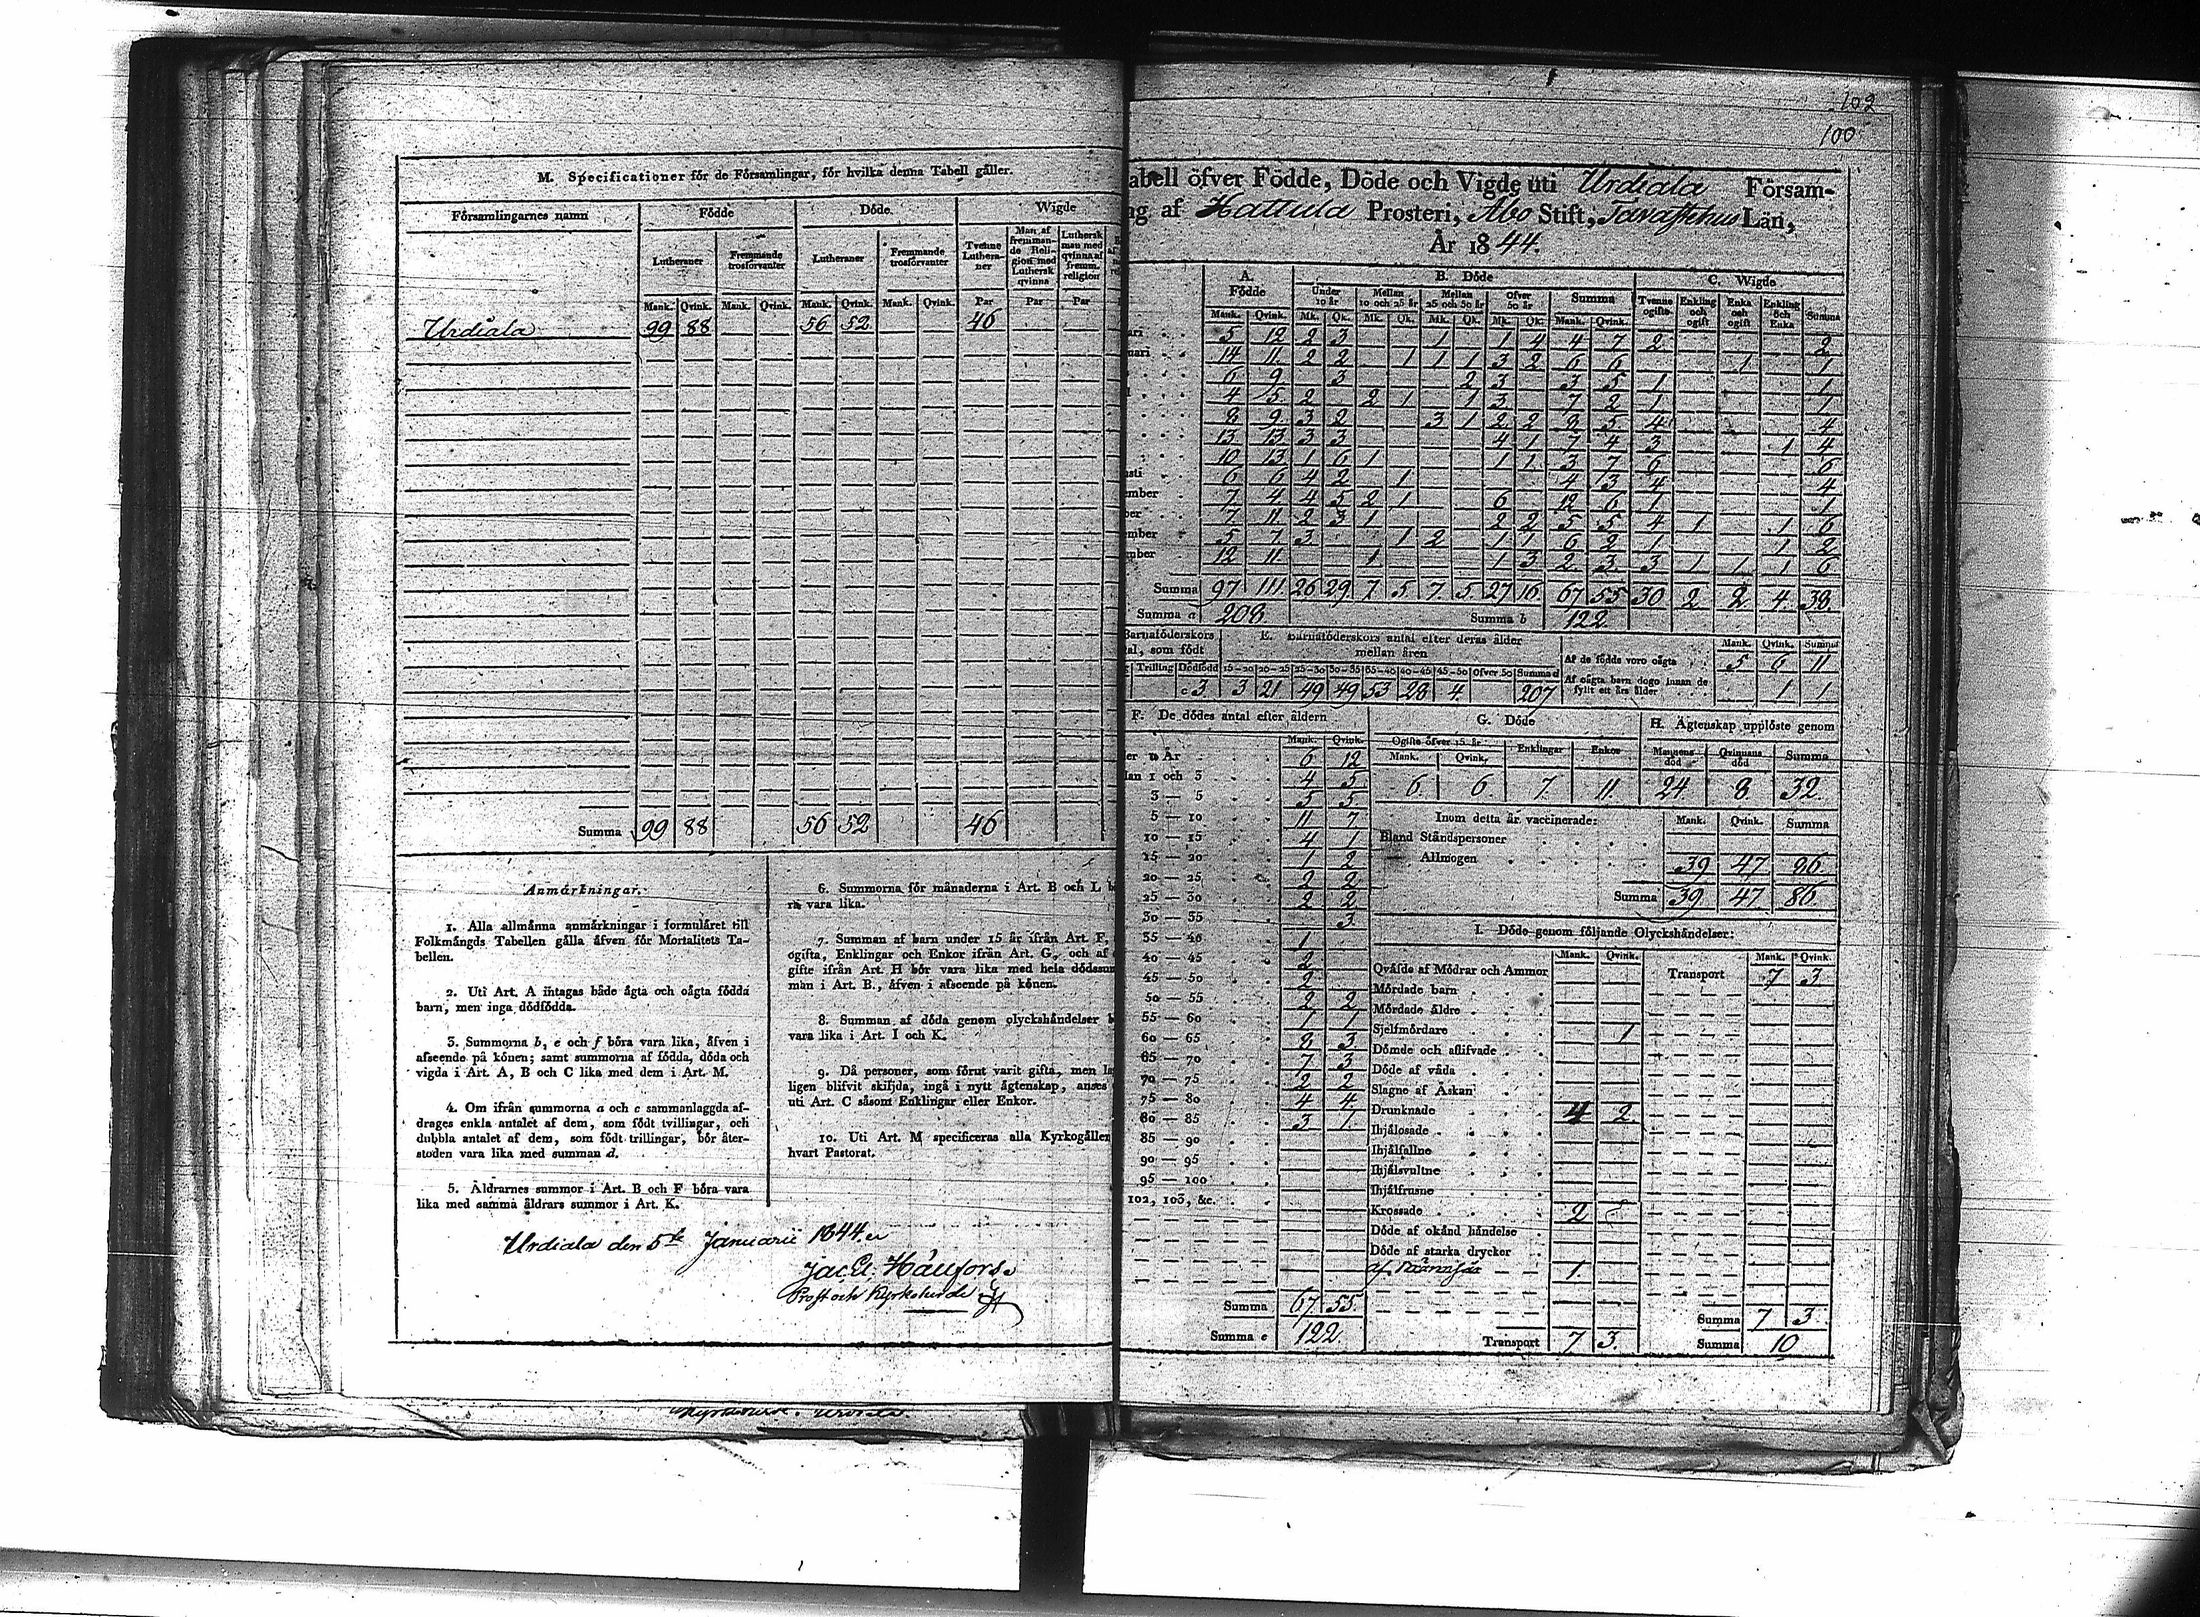 M. Specificationer för de Församlingar, för hvilka denna Tabell gäller.
Församlingarnes namn Födde Döde Wigde
Lutheraner Fremmande trosförvanter Lutheraner Fremmande trosförvanter Tvenne Lutheraner Man af fremmande Religion med Luthersk qvinna Luthersk man med qvinna af fremm. religion
Mank. Qvink. Mank. Qvink. Mank. Qvink. Mank. Qvink. Par Par Par
Urdiala 99 88 56 52 46
Summa 99 88 56 52 46
Anmärkningar.
1. Alla allmänna anmärkningar i formuläret till
Folkmängds Tabellen gälla äfven för Mortalitets Ta-
bellen.
2. Uti Art. A intagas både ägta och oägta födda
barn, men inga dödfödda.
3. Summorna b, e och f böra vara lika, äfven i
afseende på könen; samt summorna af födda, döda och
vigda i Art. A, B och C lika med dem i Art. M.
4. Om ifrån summorna a och c sammanlaggda af-
drages enkla antalet af dem, som födt tvillingar, och
dubbla antalet af dem, som födt trillingar, bör åter-
stoden vara lika med summan d.
5. Åldrarnes summor i Art. B och F böra vara
lika med samma åldrars summor i Art. K.
6. Summorna för månaderna i Art. B och L b
ra vara lika.
7. Summan af barn under 15 år ifrån Art. F,
ogifta, Enklingar och Enkor ifrån Art. G, och af
gifte ifrån Art. H bör vara lika med hela dödssum
man i Art. B., äfven i afseende på könen.
8. Summan af döda genom olyckshändelser b
vara lika i Art. I och K.
9. Då personer, som förut varit gifta, men la
ligen blifvit skiljda, ingå i nytt ägtenskap, anses
uti Art. C såsom Enklingar eller Enkor.
10. Uti Art. M specificeras alla Kyrkogällen
hvart Pastorat.
Urdiala den 5te Januarii 1844
Prost och Kyrkoherde
102
100
abell öfver Födde, Döde och Vigde uti Urdiala Försam-
ng af Hattula Prosteri, Åbo Stift, Tavastehus Län,
År 1844.
A. Födde B. Döde C. Wigde
Under 10 år Mellan 10 och 25 år Mellan 25 och 50 år Öfver 50 år Summa Tvenne ogifte Enkling och ogift Enka och ogift Enkling och Enka Summa
Mank. Qvink. Mk. Qk. Mk. Qk. Mk. Qk. Mk. Qk. Mank. Qvink.
ari 5 12 2 3 1 1 4 4 7 2 2
uari 14 11 2 2 1 1 1 3 2 6 6 1 1
6 9 3 2 3 3 5 1 1
4 5 2 2 1 1 3 7 2 1 1
8 9 3 2 3 1 2 2 8 5 4 4
13 13 3 3 4 1 7 4 3 1 4
10 13 1 6 1 1 1 3 7 6 6
usti 6 6 4 2 1 4 3 4 4
ember 7 4 4 5 2 1 6 12 6 1 1
ber 7 11 2 3 1 2 2 5 5 4 1 1 6
ember 5 7 3 1 2 1 1 6 2 1 1 2
mber 12 11 1 1 3 2 3 3 1 1 1 6
Summa 97 111 26 29 7 5 7 5 27 16 67 55 30 2 2 4 38
Summa a 208 Summa b 122
Barnaföderskors
al, som födt
Trilling Dödfödd
c 3
E. Barnaföderskors antal efter deras ålder
mellan åren
15-20 20-25 25-30 30-35 35-40 40-45 45-50 Öfver 50 Summa d
3 21 49 49 53 28 4 207
Mank. Qvink. Summa
Af de födde voro oägta 5 6 11
Af oägta barn dogo innan de
fyllt ett års ålder 1 1
F. De dödes antal efter åldern
Mank. Qvink.
er 1 År 6 12
lan 1 och 3 4 5
3 — 5 5 5
5 — 10 11 7
10 — 15 4 1
15 — 20 1 2
20 — 25 2 2
25 — 30 2 2
30 — 35 3
35 — 40 1
40 — 45 2
45 — 50 2
50 — 55 2 2
55 — 60 1 1
60 — 65 8 3
65 — 70 7 3
70 — 75 2 2
75 — 80 4 4
80 — 85 3 1
85 — 90
90 — 95
95 — 100
102, 103, &c.
Summa 67 55
Summa e 122
G. Döde
Ogifte öfver 15 år Enklingar Enkor
Mank. Qvink.
6 6 7 11
H. Ägtenskap upplöste genom
Mannens död Qvinnans död Summa
24 8 32
Inom detta år vaccinerade: Mank. Qvink. Summa
Bland Ståndspersoner
Allmogen 39 47 96
Summa 39 47 86
I. Döde genom följande Olyckshändelser:
Mank. Qvink. Mank. Qvink.
Qväfde af Mödrar och Ammor Transport 7 3
Mördade barn
Mördade äldre
Sjelfmördare 1
Dömde och aflifvade
Döde af våda
Slagne af Åskan
Drunknade 4 2
Ihjälosade
Ihjälfallne
Ihjälsvultne
Ihjälfrusne
Krossade 2
Döde af okänd händelse
Döde af starka drycker
af 1
Summa 7 3
Transport 7 3 Summa 10